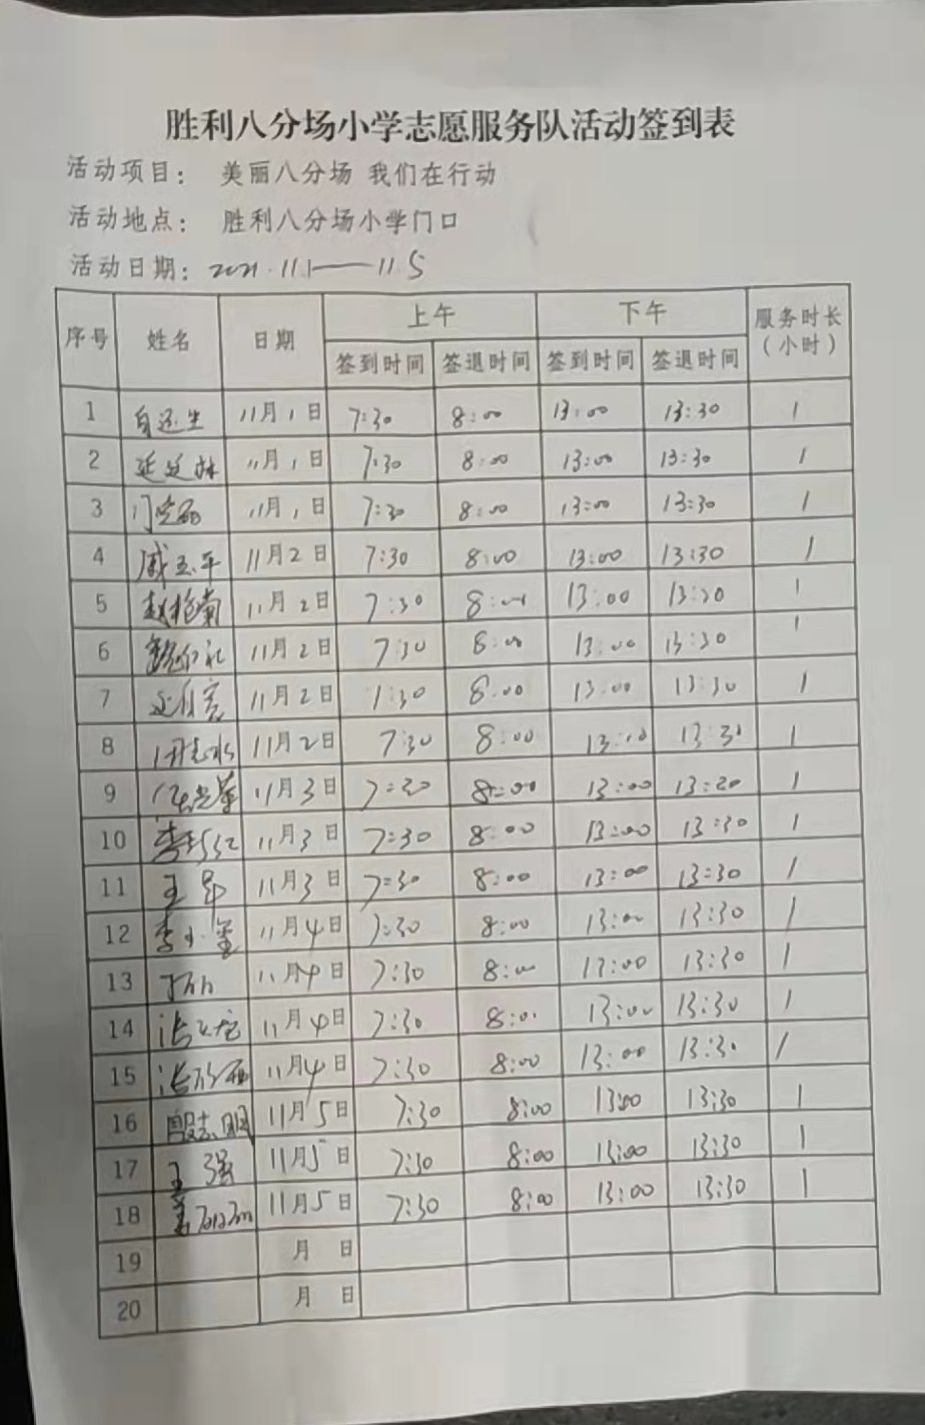 胜利八分场小学志愿服务队活动签到表
活动项目： 美丽八分场 我们在行动
活动地点： 胜利八分场小学门口
活动日期：2021.11.1——11.5
序号 姓名 日期 上午 下午 服务时长（小时）
签到时间 签退时间 签到时间 签退时间
1 11月1日 7:30 8:00 13:00 13:30 1
2 11月1日 7:30 8:00 13:00 13:30 1
3 11月1日 7:30 8:00 13:00 13:30 1
4 11月2日 7:30 8:00 13:00 13:30 1
5 赵艳菊 11月2日 7:30 8:00 13:00 13:30 1
6 11月2日 7:30 8:00 13:00 13:30 1
7 11月2日 7:30 8:00 13:00 13:30 1
8 11月2日 7:30 8:00 13:00 13:30 1
9 11月3日 7:30 8:00 13:00 13:30 1
10 11月3日 7:30 8:00 13:00 13:30 1
11 11月3日 7:30 8:00 13:00 13:30 1
12 11月4日 7:30 8:00 13:00 13:30 1
13 11月4日 7:30 8:00 13:00 13:30 1
14 11月4日 7:30 8:00 13:00 13:30 1
15 11月4日 7:30 8:00 13:00 13:30 1
16 殷志明 11月5日 7:30 8:00 13:00 13:30 1
17 王强 11月5日 7:30 8:00 13:00 13:30 1
18 11月5日 7:30 8:00 13:00 13:30 1
19 月 日
20 月 日